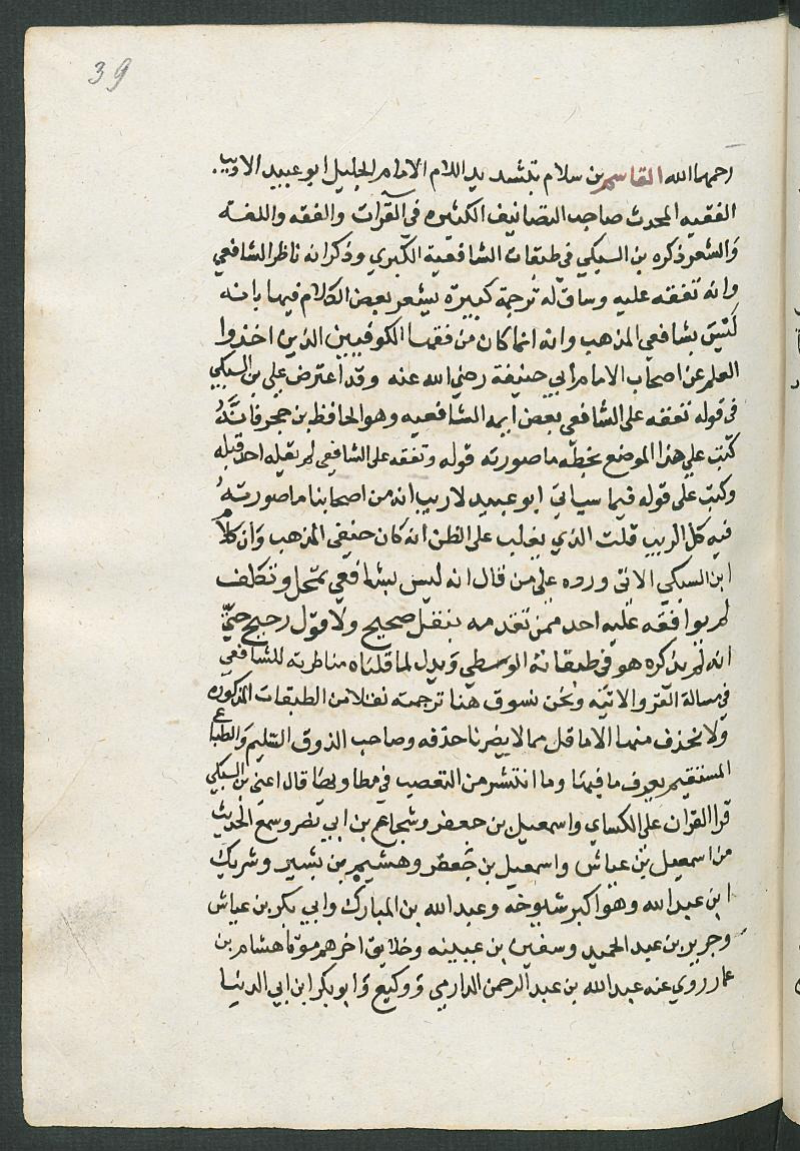 39
رحمهما الله القاسم بن سلام بتشديد اللام الامام الجليل ابو عبيد الاديب
الفقيه المحدث صاحب التصانيف الكثيره في القرات والفقه واللغة
والشعر ذكره بن السبكي في طبقات الشافعية الكبري وذكر انه ناظر الشافعي
وانه تفقه عليه وساق له ترجمة كبيرة يشعر بعض الكلام فيها بانه
ليس بشافعي المذهب وانه انما كان من فقها الكوفيين الذين اخذوا
العلم عن اصحاب الامام ابي حنيفة رضي الله عنه وقد اعترض علي بن السبكي
في قوله تفقه علي الشافعي بعض ايمه الشافعيه وهو الحافظ بن حجر فانه
كتب علي هذا الموضع بخطه ما صورته قوله وتفقه علي الشافعي لم يقله احد قبله
وكتب علي قوله فيما سياتي ابو عبيد لاريب انه من اصحابنا ما صورته
فيه كل الريب قلت الذي يغلب علي الظن انه كان حنيفي المذهب وان كلام
ابن السبكي الاتي ورده علي من قال انه ليس بشافعي تمحل وتكلف
لم يوافقه عليه احد ممن تقدمه بنقل صحيح ولا قول رجيح حتي
انه لم يذكره هو في طبقاته الوسطي ويدل لما قلناه مناظرته للشافعي
في مسالة القرو الاتية ونحن نسوق هنا ترجمته نقلا من الطبقات المذكوره
ولا نحذف منها الا ما قل مما لا يضرنا حذفه وصاحب الذوق السليم والطباع
المستقيم يعرف ما فيها وما انتشر من التعصب في مطاويها قال اعني بن السبكي
قرا القران علي الكساي واسمعيل بن جعفر وشجاع بن ابي نصر وسمع الحديث
من اسمعيل بن عياش واسمعيل بن جعفر وهشيم بن بشير وشريك
ابن عبد الله وهو اكبر شيوخه وعبد الله بن المبارك وابي بكر بن عياش
وجرير بن عبد الحميد وسفين بن عيينه وخلايق اخرهم موتا هشام بن
عمار روي عنه عبد الله بن عبد الرحمن الدارمي ووكيع وابو بكر ابن ابي الدنيا